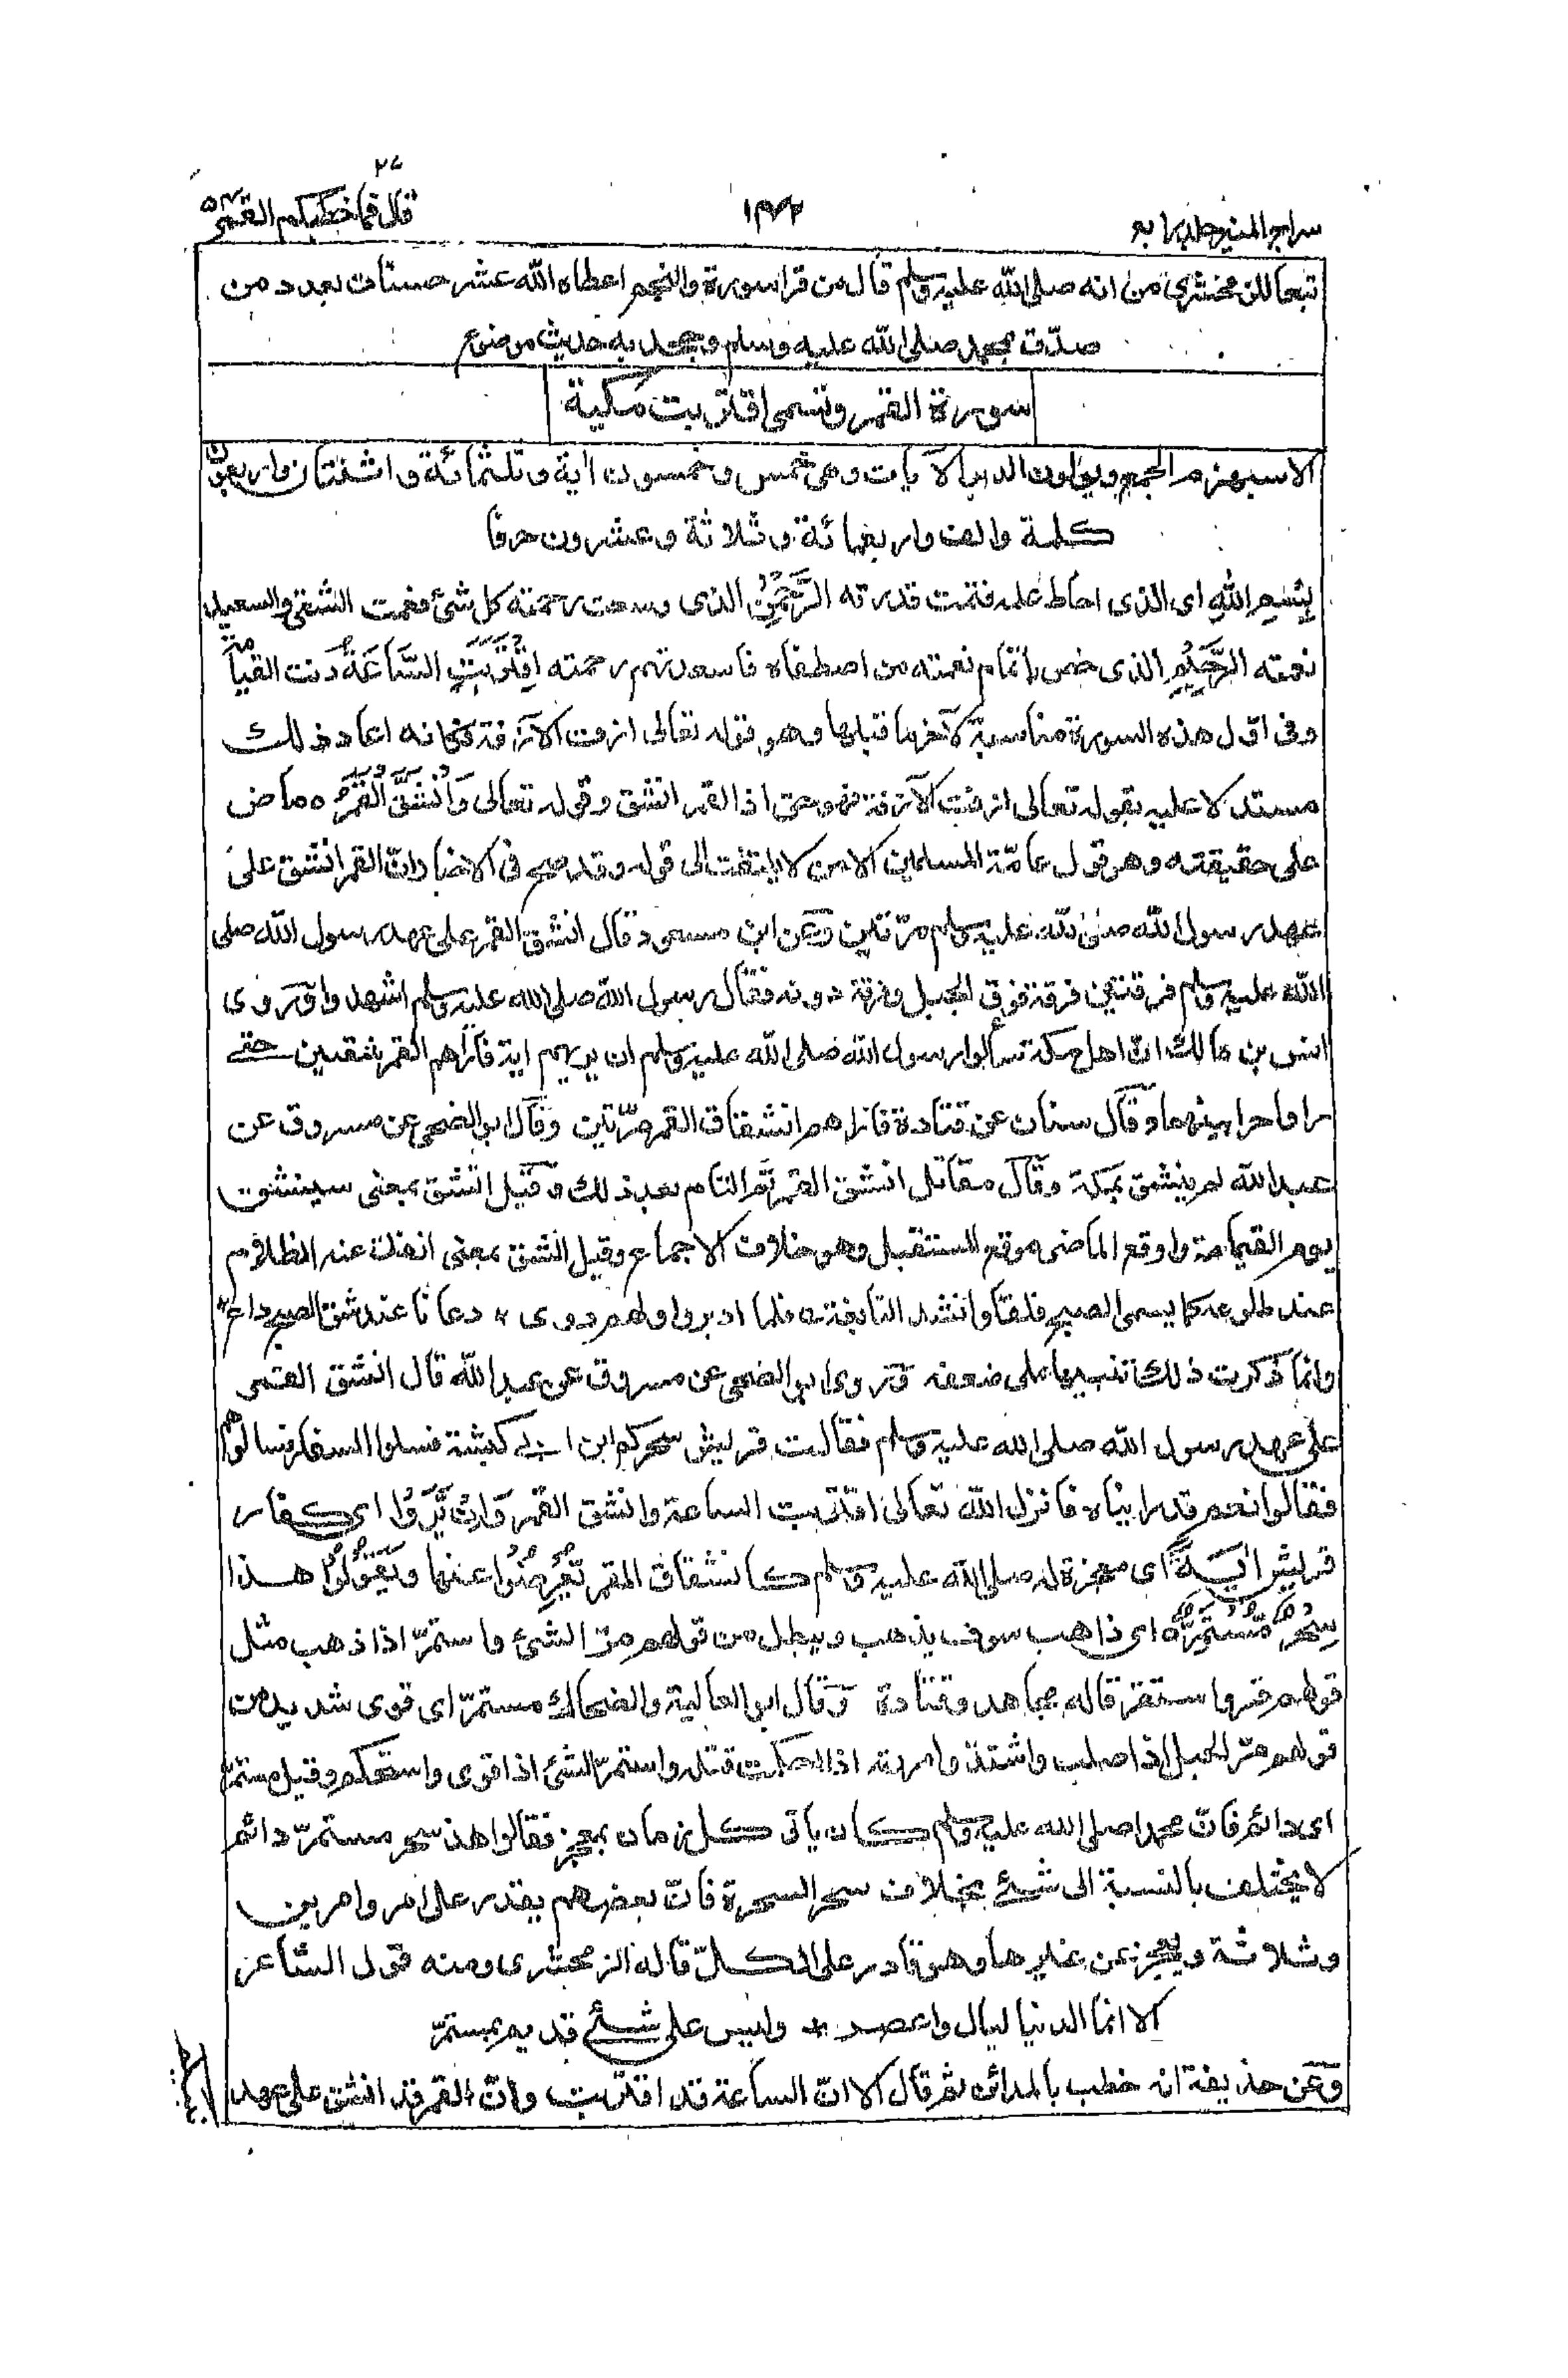 سراج المنير جلد رابع
١٣٤٢
٢٧
قال فما خطبكم القمر ٥٤
تبعا للزمخشري من انه صلى الله عليه وسلم قال من قرا سورة والنجم اعطاه الله عشر حسنات بعدد من
صدّق بمحمد صلى الله عليه وسلم وجحد به حديث موضوع
سورة القمر وتسمى اقتربت مكية
الا سيهزم الجمع ويولون الدبر الآيات وهى خمس وخمسون اٰية وثلثمائة واثنتان واربعون
كلمة والف واربعمائة وثلاثة وعشرون حرفا
بِسْمِ اللهِ اى الذى احاط علمه فتمت قدرته الرَّحْمٰنِ الذى وسعت رحمته كل شئ فعمت الشقى والسعيد
نعمته الرَّحِيْمِ الذى خص باتمام نعمته من اصطفاه فاسعدتهم رحمته اِقْتَرَبَتِ السَّاعَةُ دنت القيامة
وفى اوّل هذه السورة مناسبة لآخر ما قبلها وهو قوله تعالى ازفت الآزفة فكانه اعاد ذلك
مستدلا عليه بقوله تعالى ازفت الآزفة فهو حق اذ القمر انشق وقوله تعالى وَانْشَقَّ الْقَمَرُ ه ماض
على حقيقته وهو قول عامّة المسلمين الا من لا يلتفت الى قوله وقد صح فى الاخبار انّ القمر انشق على
عهد رسول الله صلى الله عليه وسلم مرّتين وعن ابن مسعود قال انشق القمر على عهد رسول الله صلى
الله عليه وسلم فرقتين فرقة فوق الجبل وفرقة دونه فقال رسول الله صلى الله عليه وسلم اشهدوا وروى
انس بن مالك انّ اهل مكة سألوا رسول الله صلى الله عليه وسلم ان يريهم اية فأراهم القمر شقين حتى
راوا حرا بينهما وقال سنان عن قتادة فاراهم انشقاق القمر مرّتين وقال ابو الضحى عن مسروق عن
عبد الله لم ينشق بمكة وقال مقاتل انشق القمر ثم التام بعد ذلك وقيل انشق بمعنى سينشق
يوم القيامة واوقع الماضى موقع المستقبل وهو خلاف الاجماع وقيل انشق بمعنى انفلق عنه الظلام
عند طلوعه كما يسمى الصبح فلقا وانشد النابغة ه فلما ادبروا ولهم دوى ٭ دعانا عند شق الصبح داع ٭
وانما ذكرت ذلك تنبيها على ضعفه وروى ابو الضحى عن مسروق عن عبد الله قال انشق القمر
على عهد رسول الله صلى الله عليه وسلم فقالت قريش سحركم ابن ابى كبشة فسلوا السفار فسالوهم
فقالوا نعم قد رايناه فانزل الله تعالى اقتربت الساعة وانشق القمر وَاِنْ يَّرَوْا اى كفار
قريش اٰيَةً اى معجزة له صلى الله عليه وسلم كانشقاق القمر يُّعْرِضُوْا عنها وَيَقُوْلُوْا هذا
سِحْرٌ مُّسْتَمِرٌّ ه اى ذاهب سوف يذهب ويبطل من قولهم مرّ الشئ واستمرّ اذا ذهب مثل
قولهم قر واستقر قاله مجاهد وقتادة وقال ابو العالية والضحاك مستمرّ اى قوى شديد من
قولهم مرّ الحبل اذا صلب واشتدّ وامررته اذا احكمت فتله واستمرّ الشئ اذا قوى واستحكم وقيل مستمرّ
اى دائم فانّ محمدا صلى الله عليه وسلم كان ياتى كل زمان بمعجز فقالوا هذ سحر مستمرّ دائم
لا يختلف بالنسبة الى شئ بخلاف سحر السحرة فانّ بعضهم يقدر على امر وامرين
وثلاثة ويعجز عن غيرها وهو قادر على الكلّ قاله الزمخشرى ومنه قول الشاعر
الا انما الدنيا ليال واعصر ٭ وليس على شئ قديم بمستمرّ
وعن حذيفة انه خطب بالمدائن ثم قال الا انّ الساعة قد اقتربت وانّ القمر قد انشق على عهد